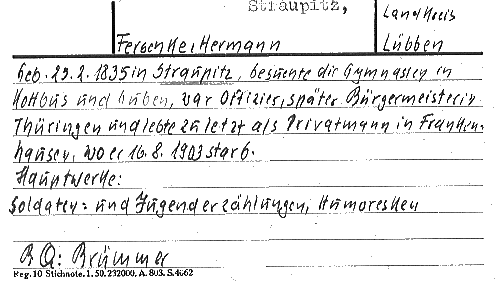 Straupitz,
Landkreis
Lübben
Fersenke, Hermann
Geb. 23.2.1835 in Straupitz, besuchte die Gymnasien in
Kottbus und Guben, war Offizier, später Bürgermeister in
Thüringen und lebte zuletzt als Privatmann in Franken-
hausen, wo er 16.8.1903 starb.
Hauptwerke:
Soldaten- und Jugenderzählungen, Humoresken
BQ: Brümmer
Reg. 10 Stichnote. 1. 50. 232000. A. 803. S. 4662